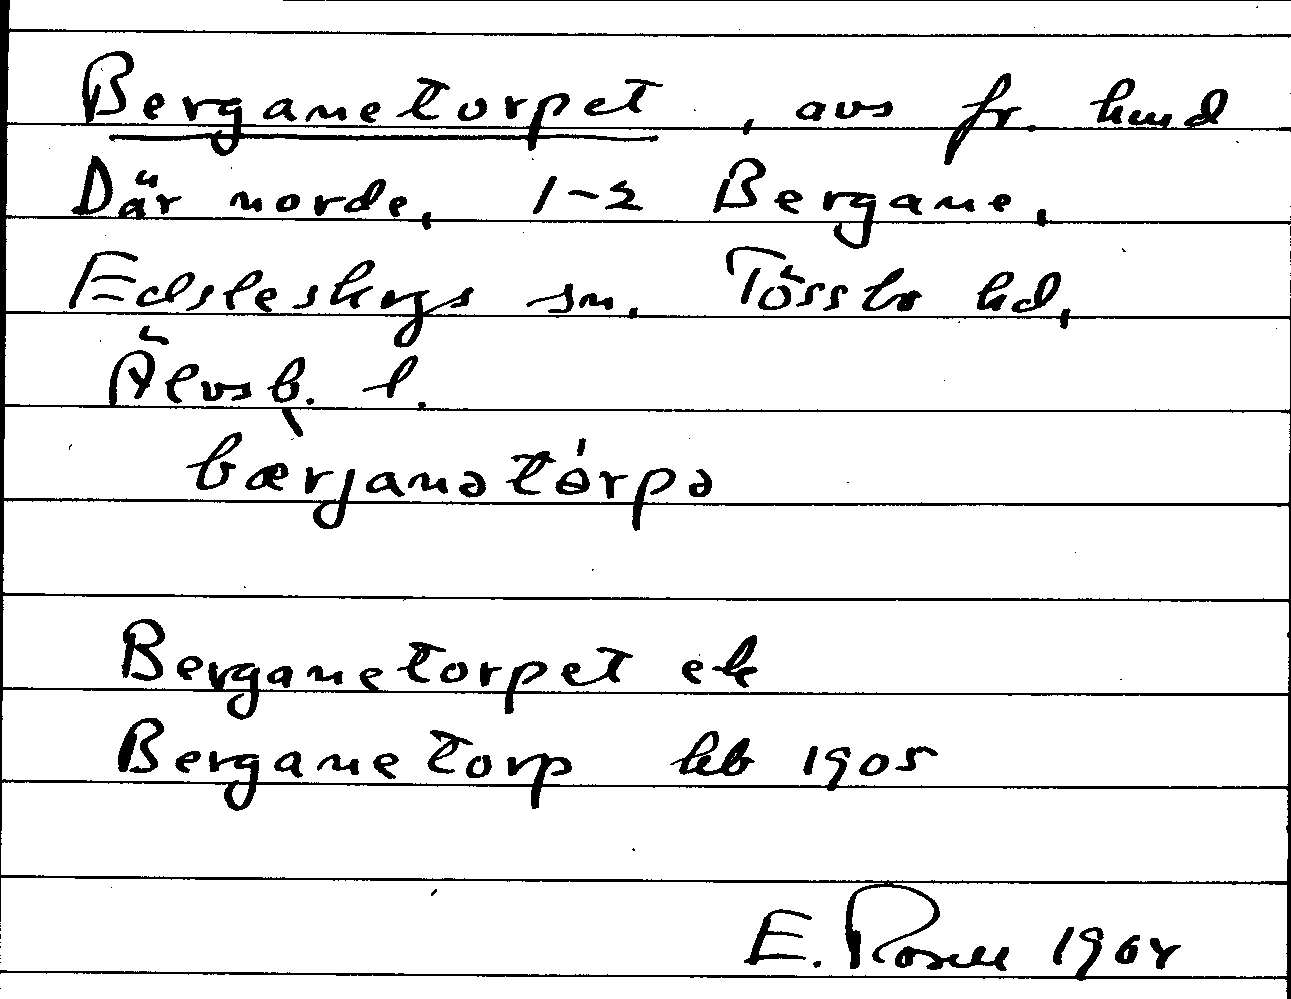 Berganetorpet, avs fr. hmd
Där norde, 1-2 Bergane,
Edsleskogs sn. Tössbo hd,
Älvsb. l.
bærjanətórpə
Berganetorpet ek
Berganetorp kb 1905
E. Rosell 1964